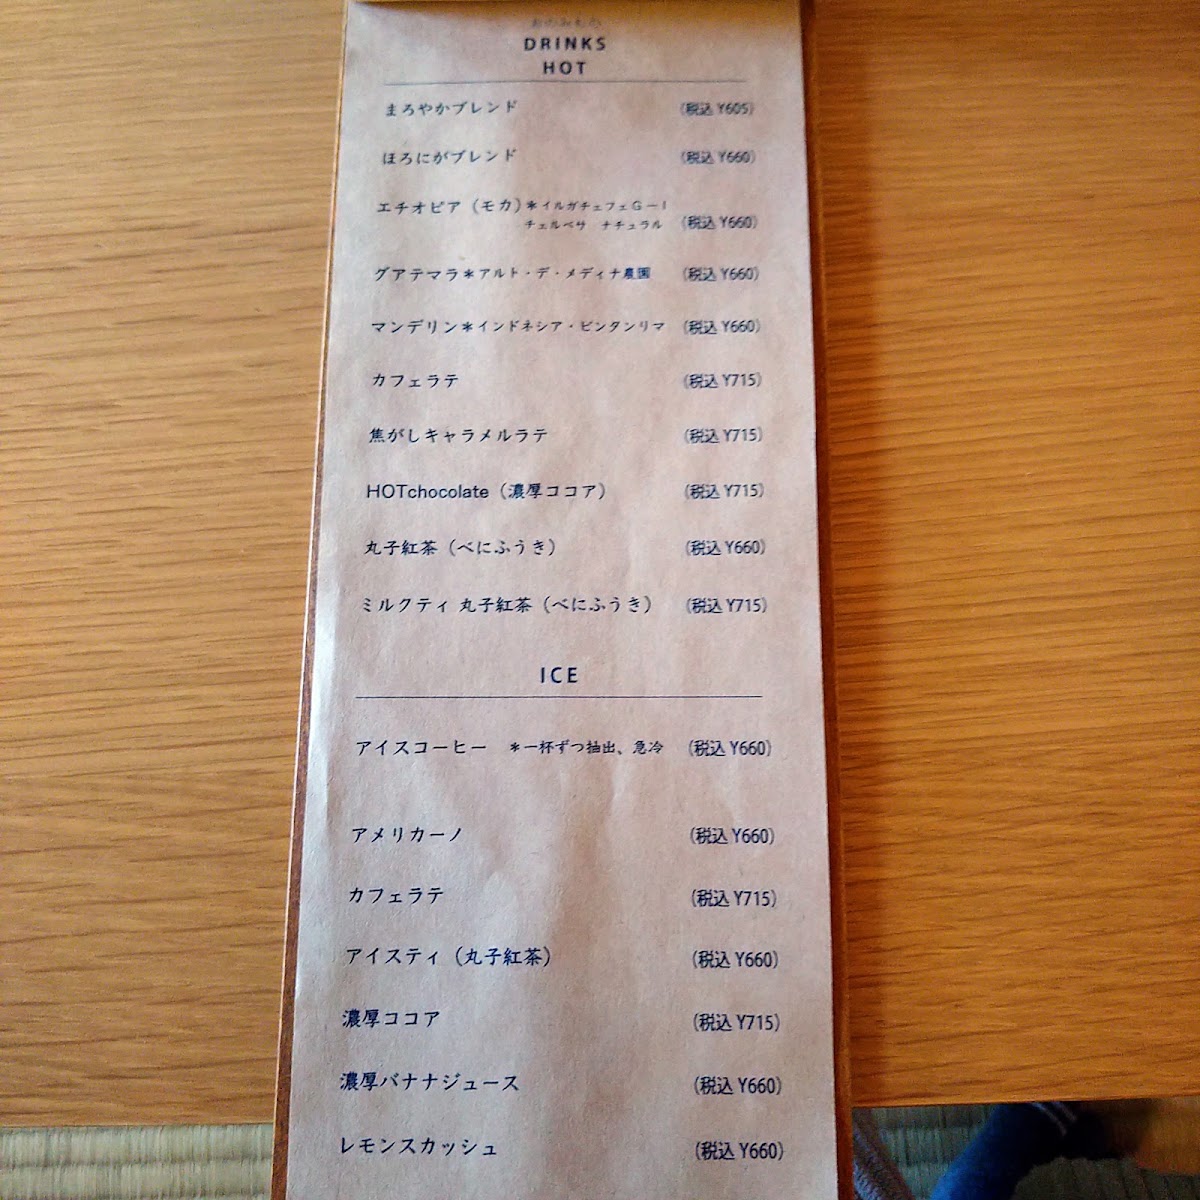 おのみもの
DRINKS
HOT
まろやかブレンド (税込 ¥605)
ほろにがブレンド (税込 ¥660)
エチオピア（モカ）＊イルガチェフェＧ－１
チェルベサ ナチュラル (税込 ¥660)
グアテマラ＊アルト・デ・メディナ農園 (税込 ¥660)
マンデリン＊インドネシア・ビンタンリマ (税込 ¥660)
カフェラテ (税込 ¥715)
焦がしキャラメルラテ (税込 ¥715)
HOTchocolate（濃厚ココア） (税込 ¥715)
丸子紅茶（べにふうき） (税込 ¥660)
ミルクティ 丸子紅茶（べにふうき） (税込 ¥715)
ICE
アイスコーヒー ＊一杯ずつ抽出、急冷 (税込 ¥660)
アメリカーノ (税込 ¥660)
カフェラテ (税込 ¥715)
アイスティ（丸子紅茶） (税込 ¥660)
濃厚ココア (税込 ¥715)
濃厚バナナジュース (税込 ¥660)
レモンスカッシュ (税込 ¥660)